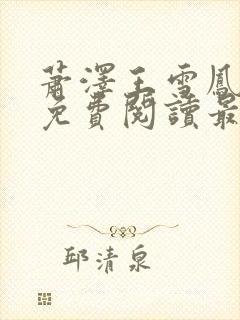 蕭澤王雪鳳
免費閱讀最
邱清泉